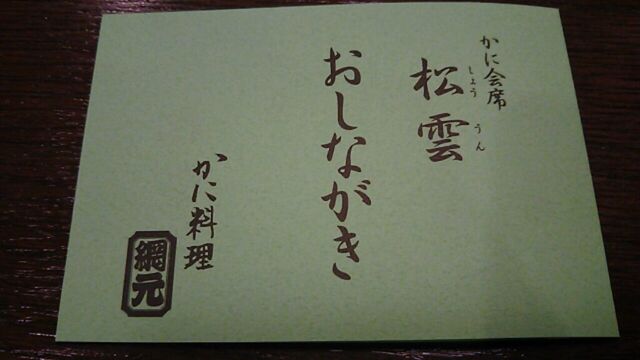 かに会席
松雲
しょううん
おしながき
かに料理
網元